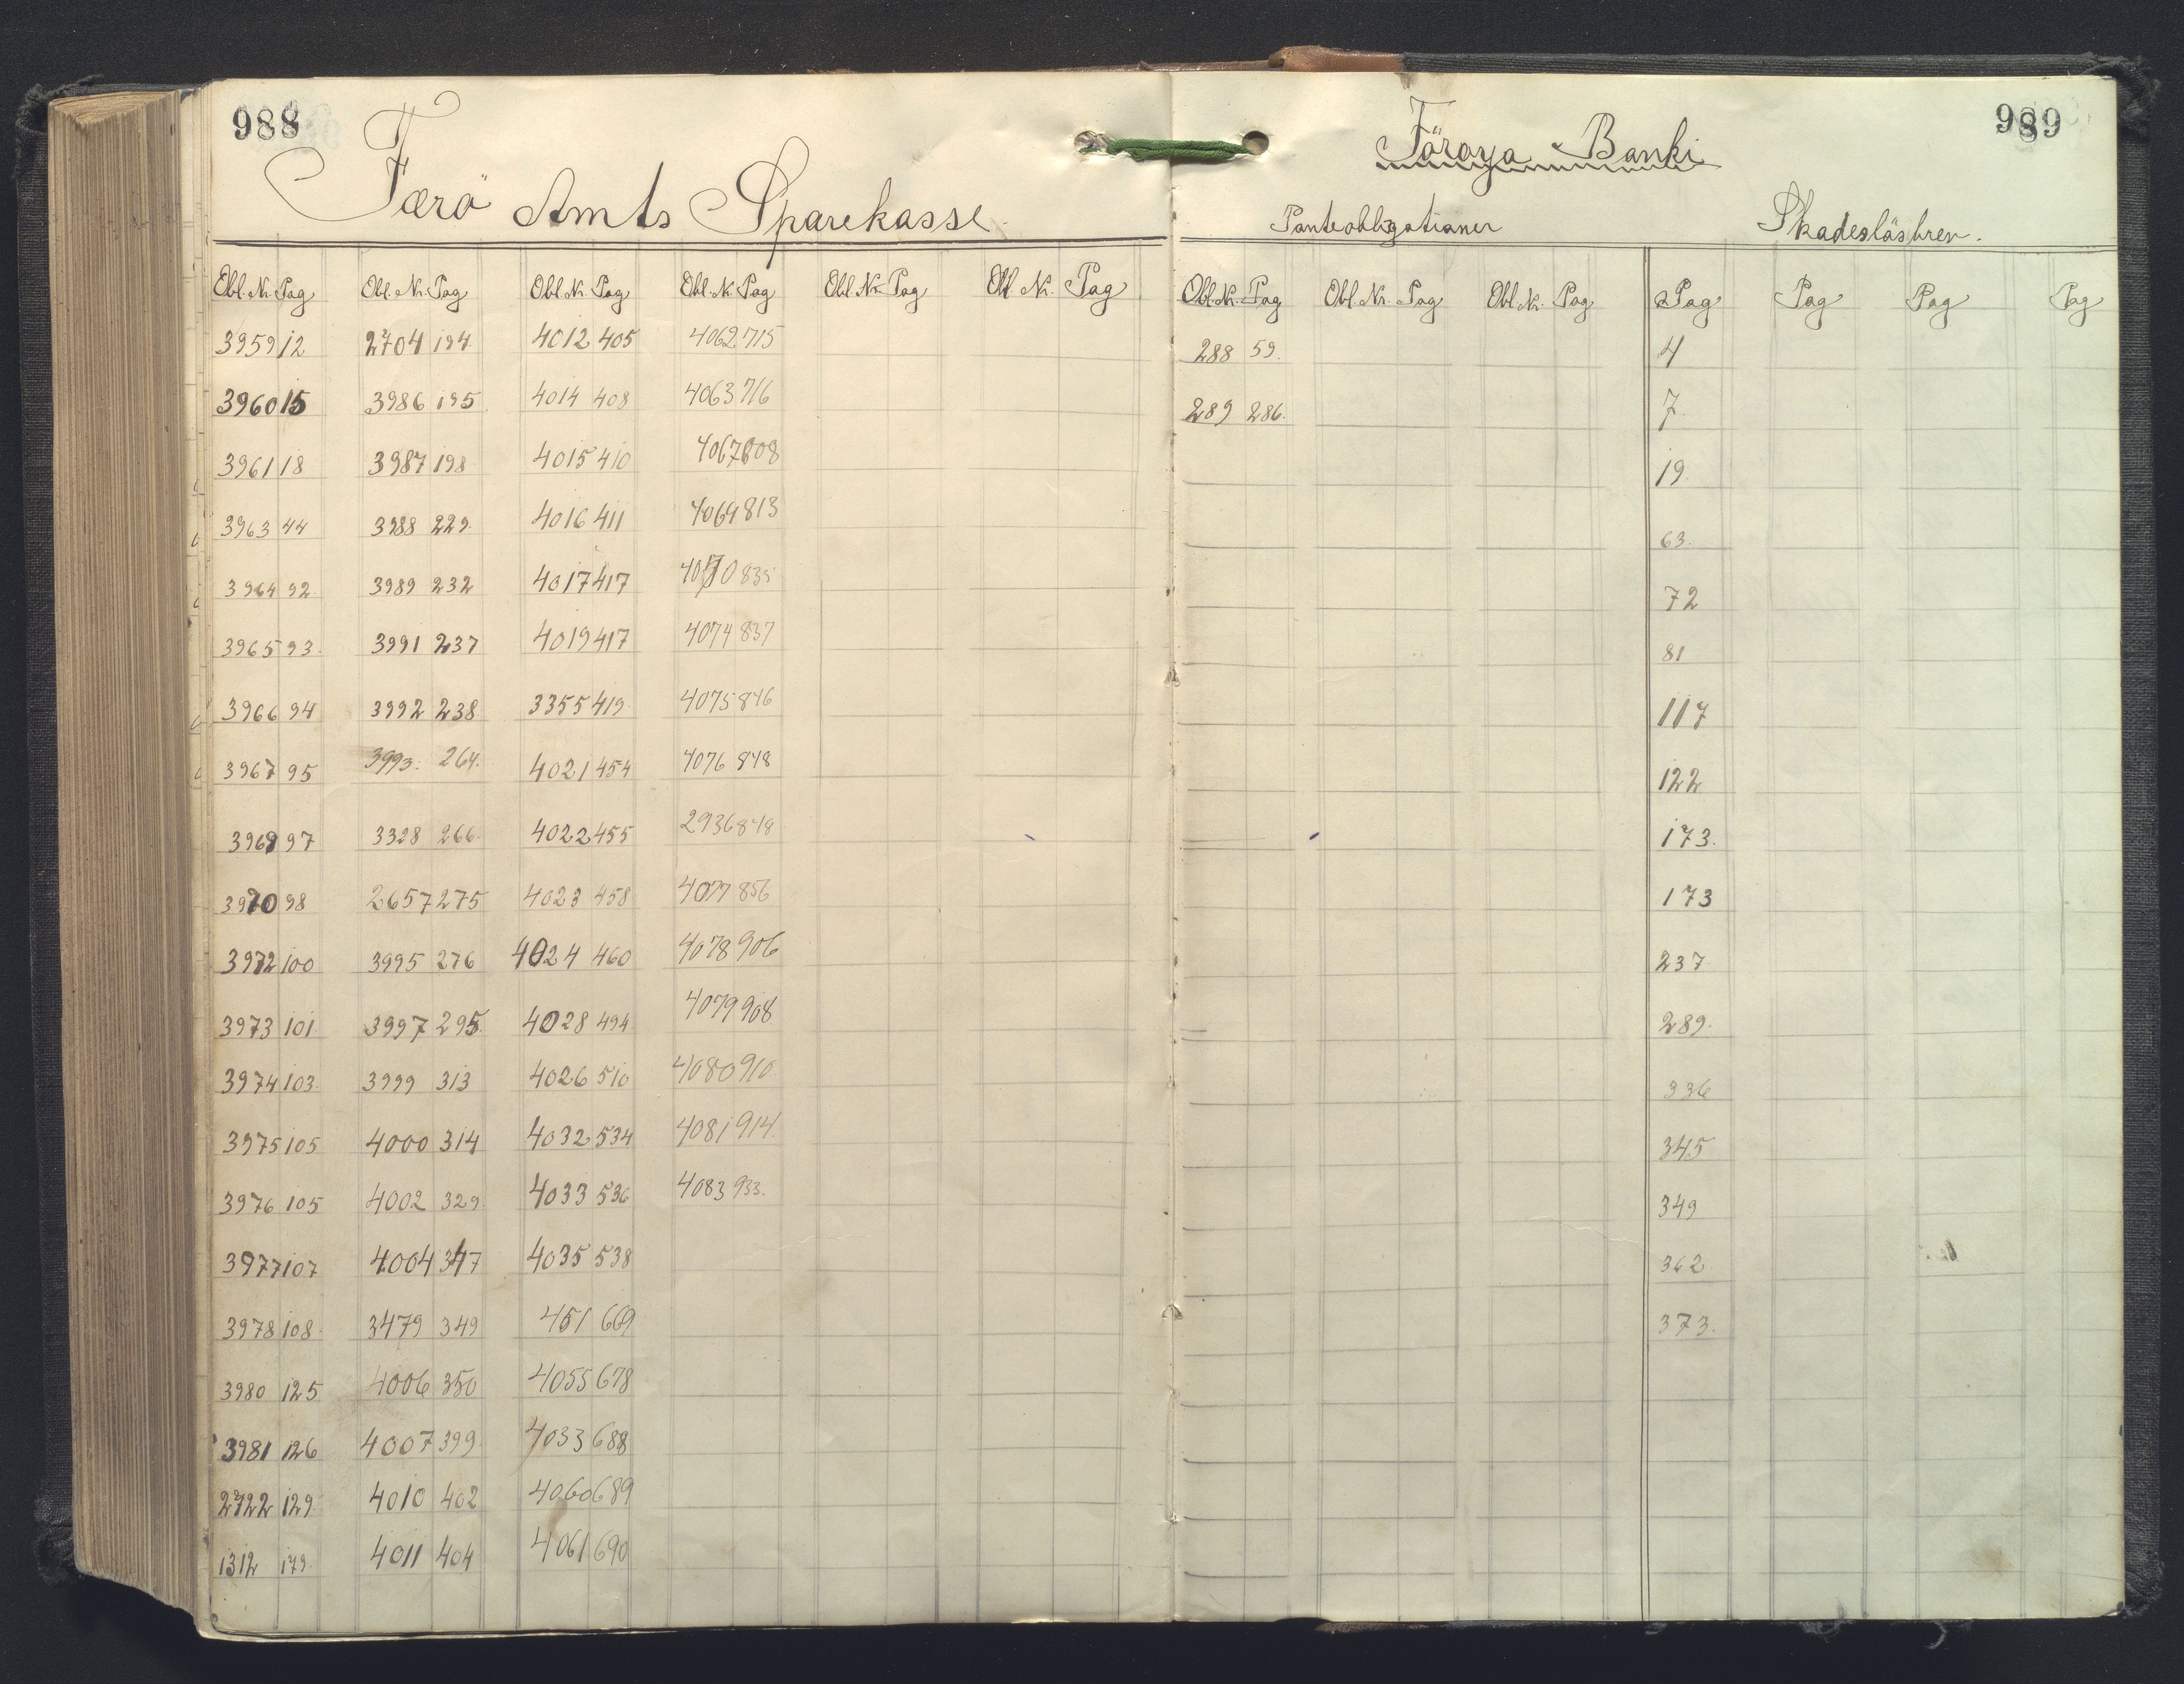 988
Færö Amts Sparekasse
Obl. Nr. Pag Obl. Nr. Pag Obl. Nr. Pag Obl. Nr. Pag Obl. Nr. Pag Obl. Nr. Pag
3959 12 2704 194 4012 405 4062 715
3960 15 3986 195 4014 408 4063 716
3961 18 3987 198 4015 410 4067 808
3963 44 3988 229 4016 411 4069 813
3964 92 3989 232 4017 417 4070 835
3965 93 3991 237 4019 417 4074 837
3966 94 3992 238 3355 419 4075 846
3967 95 3993 264 4021 454 4076 848
3969 97 3328 266 4022 455 2936 848
3970 98 2657 275 4023 458 4077 856
3972 100 3995 276 4024 460 4078 906
3973 101 3997 295 4028 494 4079 908
3974 103 3999 313 4026 510 4080 910
3975 105 4000 314 4032 534 4081 914
3976 105 4002 329 4033 536 4083 933
3977 107 4004 347 4035 538
3978 108 3479 349 451 669
3980 125 4006 350 4055 678
3981 126 4007 399 4033 688
2722 129 4010 402 4060 689
1312 179 4011 404 4061 690
989
Föroya Banki
Panteobligationer Skadesløsbrev.
Obl. Nr. Pag Obl. Nr. Pag Obl. Nr. Pag Pag Pag Pag Pag
288 59. 4
289 286. 7.
19.
63.
72
81
117
122
173.
173
237
289.
336
345
349
362
373.